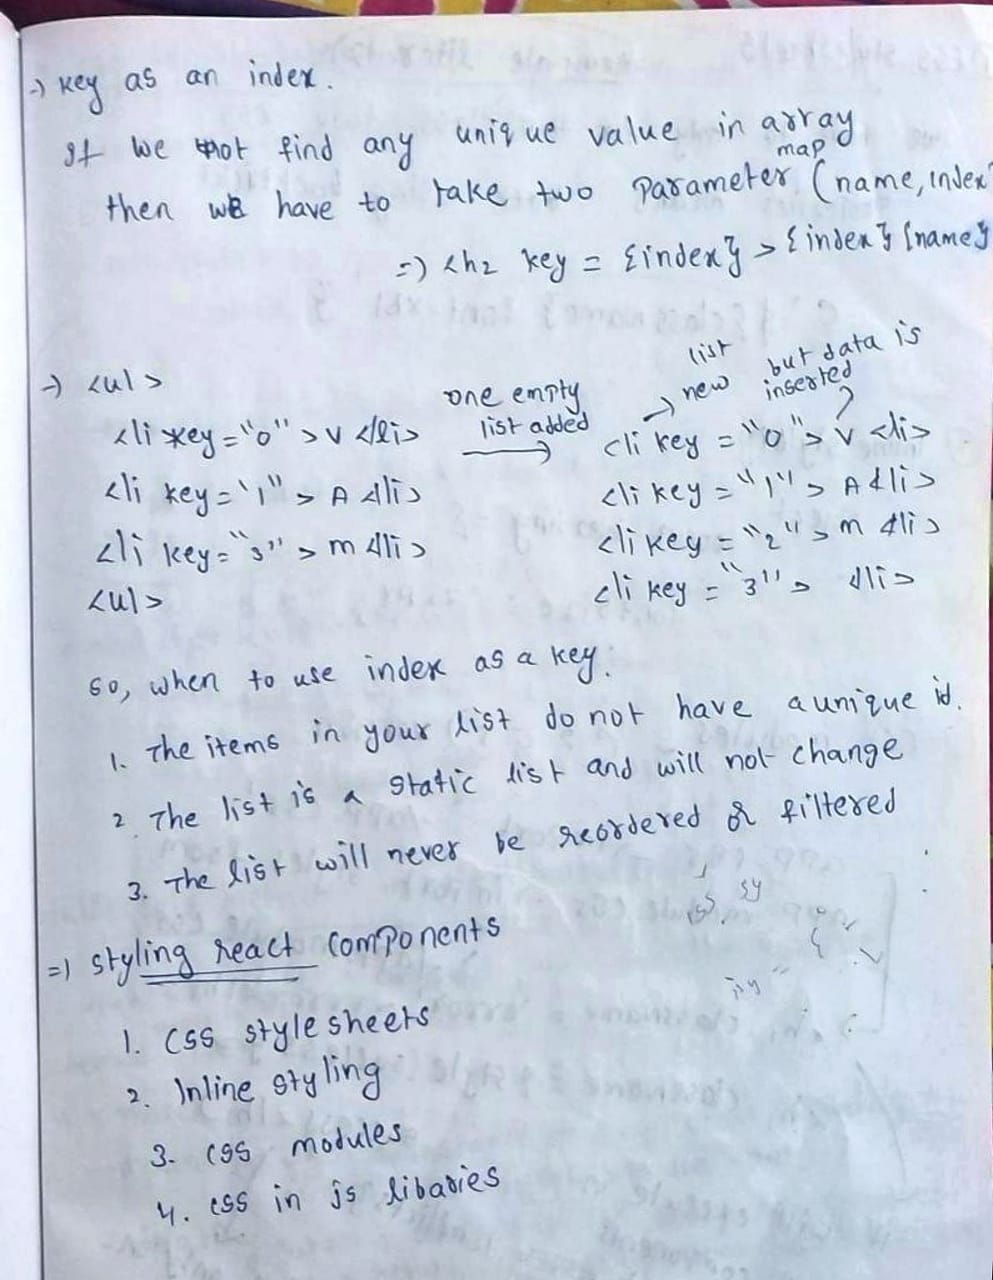 → key as an index.
If we not find any unique value in array
map
then we have to take two Parameter (name, index
=> <h2 key = {index} > {index} {name}
→ <ul>
one empty
list added
list
new
but data is
inserted
<li key="0">v </li>
<li key="1"> A </li>
<li key="3"> m </li>
<ul>
<li key = "0"> v <li>
<li key = "1"> A </li>
<li key = "2"> m </li>
<li key = "3"> </li>
so, when to use index as a key:
1. The items in your list do not have a unique id.
2. The list is a static list and will not change
3. The list will never be reordered or filtered
=> styling react components
1. CSS style sheets
2. Inline styling
3. CSS modules
4. CSS in js libaries